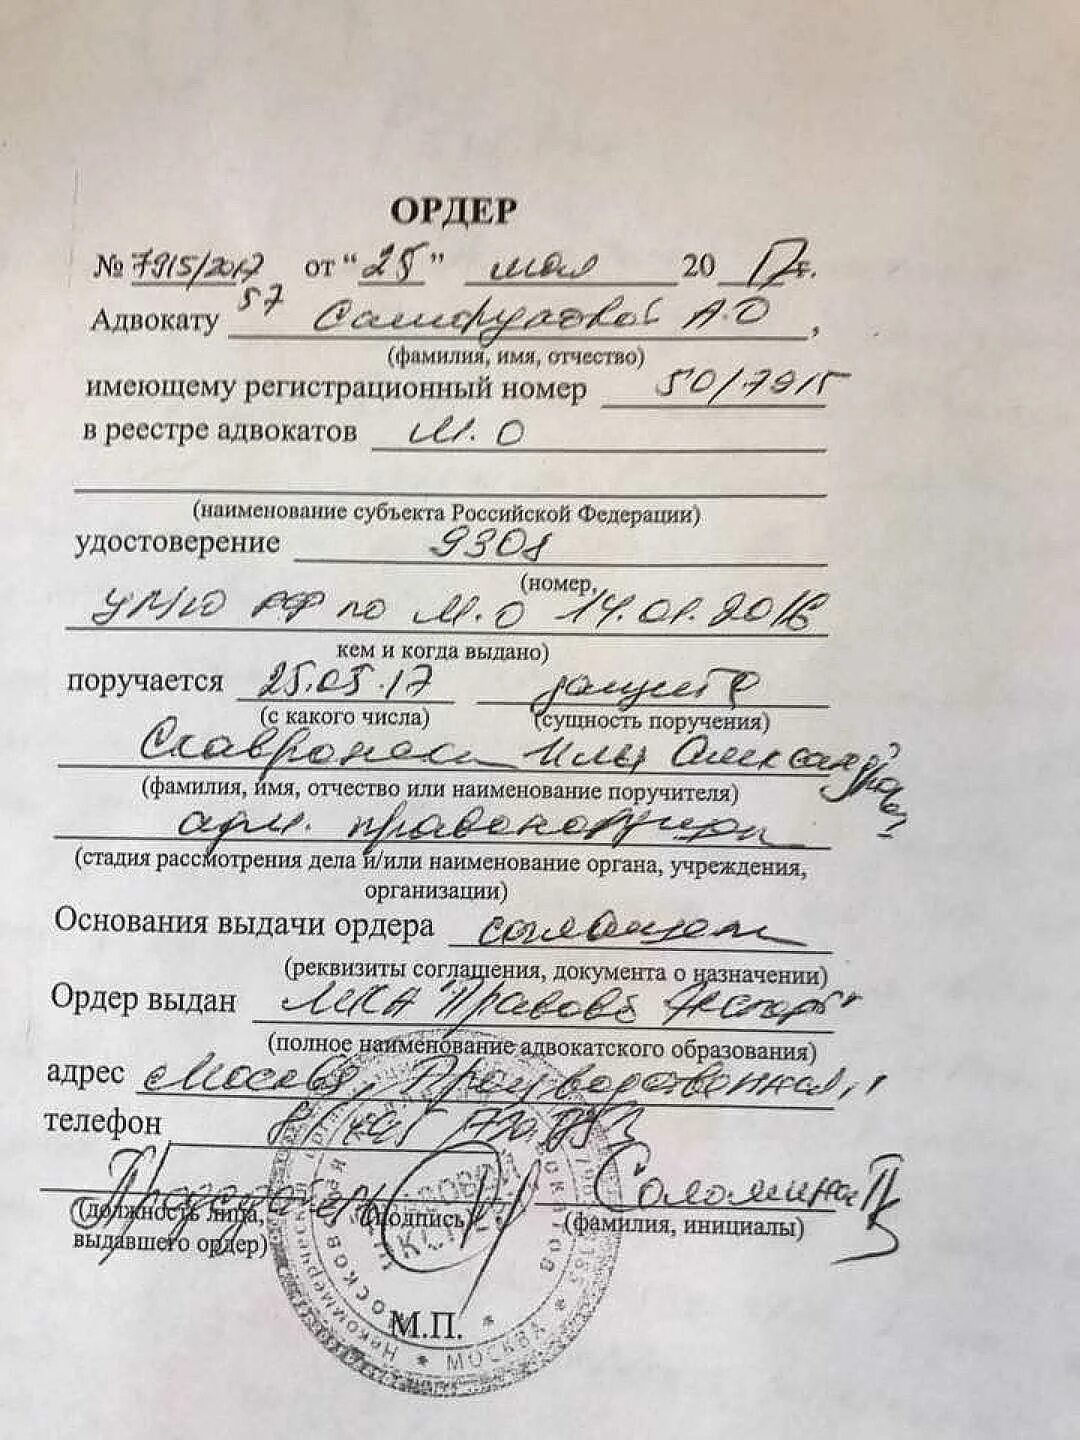 ОРДЕР
№ 7915/2017 от “25” мая 2017г.
57
Адвокату А.О,
(фамилия, имя, отчество)
имеющему регистрационный номер 50/7915
в реестре адвокатов М.О
(наименование субъекта Российской Федерации)
удостоверение 9308
(номер,
УМЮ РФ по М.О 14.01.2016
кем и когда выдано)
поручается 25.05.17 защита
(с какого числа) (сущность поручения)
Илья Александрович
(фамилия, имя, отчество или наименование поручителя)
адм. правонарушен
(стадия рассмотрения дела и/или наименование органа, учреждения,
организации)
Основания выдачи ордера соглашение
(реквизиты соглашения, документа о назначении)
Ордер выдан МКА "Правовой
(полное наименование адвокатского образования)
адрес Москва, Производственная,
телефон
Председатель
(должность лица, (подпись) (фамилия, инициалы)
выдавшего ордер)
М.П.
МОСКВА